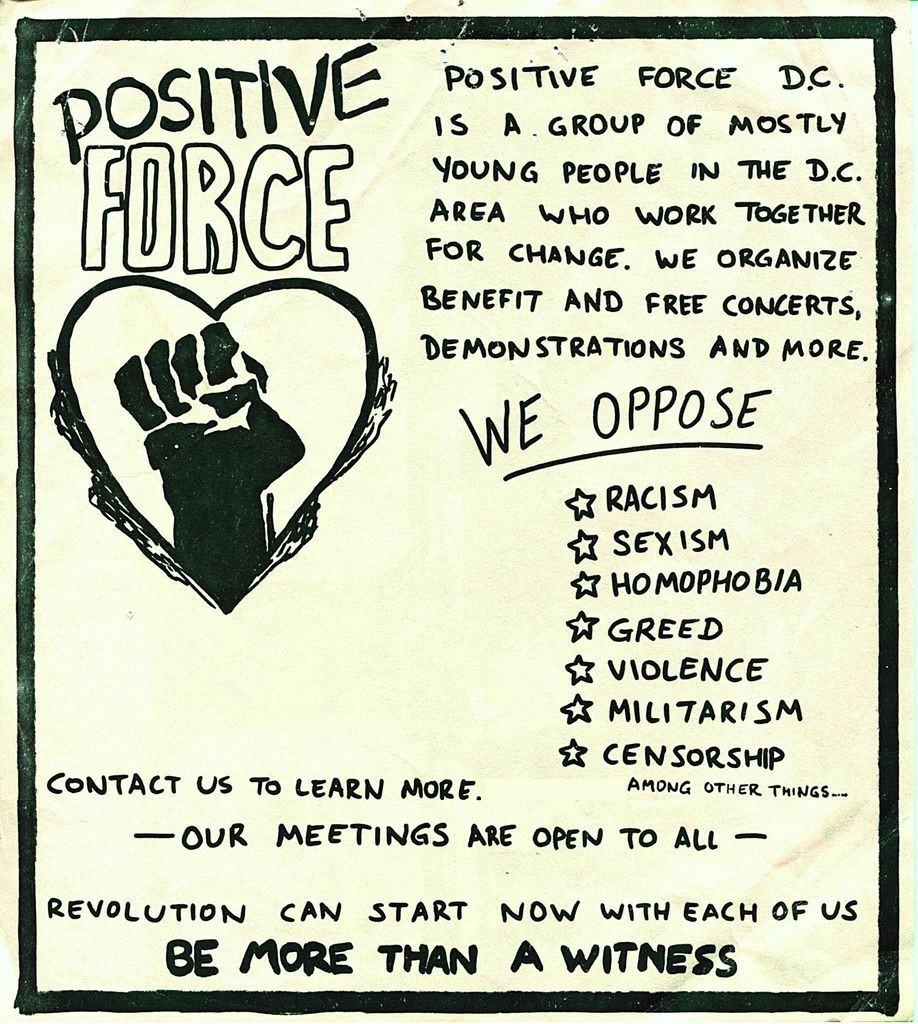 POSITIVE
FORCE
POSITIVE FORCE D.C.
IS A GROUP OF MOSTLY
YOUNG PEOPLE IN THE D.C.
AREA WHO WORK TOGETHER
FOR CHANGE. WE ORGANIZE
BENEFIT AND FREE CONCERTS,
DEMONSTRATIONS AND MORE.
WE OPPOSE
☆ RACISM
☆ SEXISM
☆ HOMOPHOBIA
☆ GREED
☆ VIOLENCE
☆ MILITARISM
☆ CENSORSHIP
AMONG OTHER THINGS....
CONTACT US TO LEARN MORE.
— OUR MEETINGS ARE OPEN TO ALL —
REVOLUTION CAN START NOW WITH EACH OF US
BE MORE THAN A WITNESS